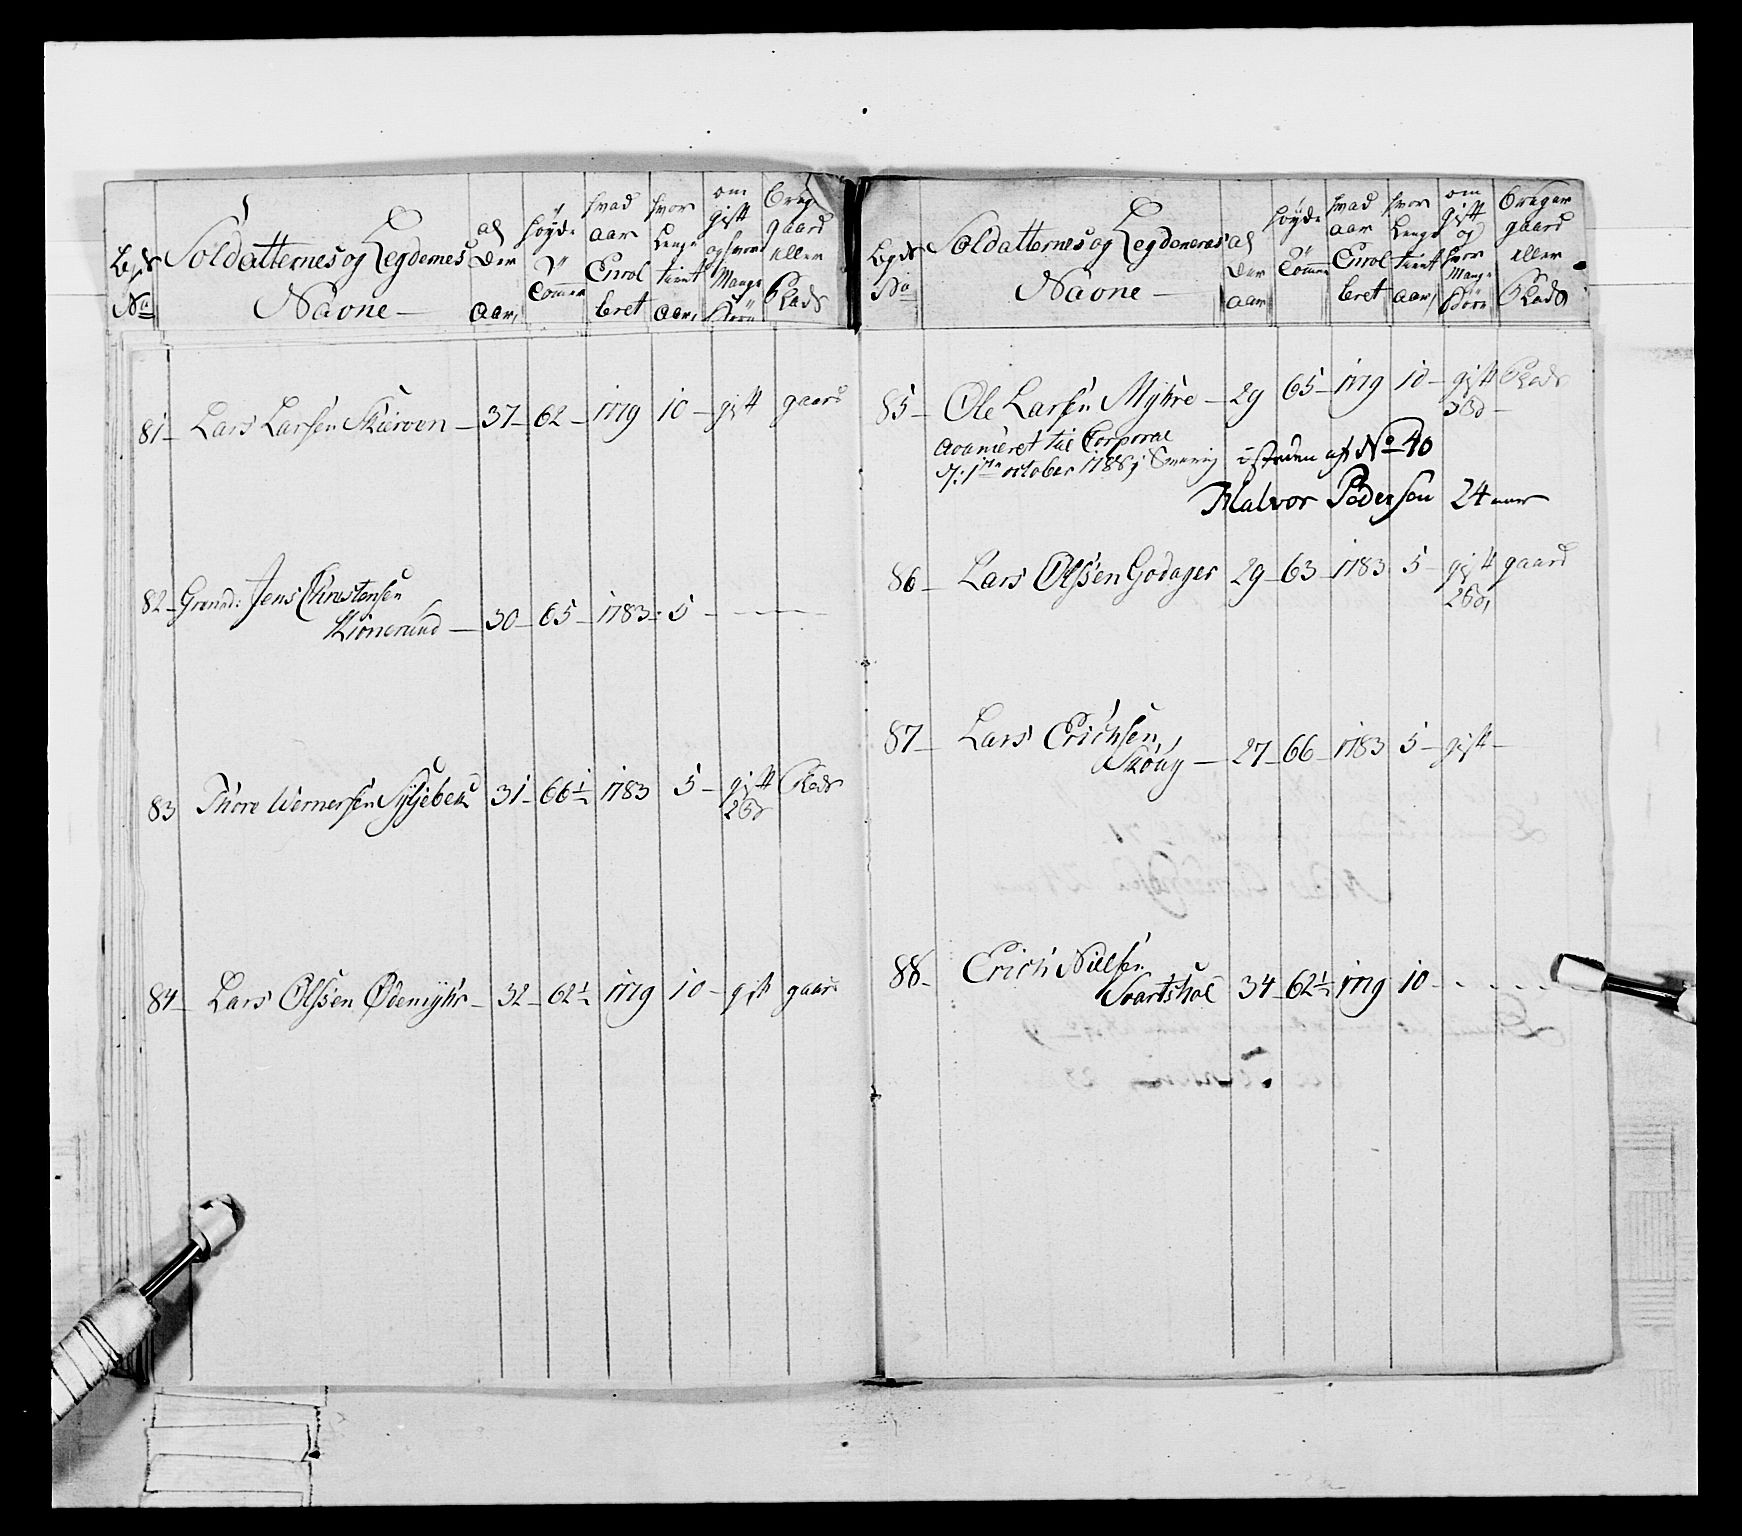 Legds No Soldatternes og Legdernes Navne alder aar, höyde Tommer hvad aar Enrolleret hvor Lenge tient aar, om gift og hvor Mange Börn Bruger gaard eller Plads
81 Lars Larsen Skierven 37 62 1779 10 gift gaard
82 Grenad: Jens Christensen
Kionerund 30 65 1783 5
83 Thore Wernersen Syljebek 31 66½ 1783 5 gift Plads
2 B
84 Lars Olssen Ödemyhr 32 62½ 1779 10 gift gaard
Legds No Soldatternes og Legdernes Navne alder aar höyde Tommer hvad aar Enrolleret hvor Lenge tient aar, om gift og hvor Mange Börn Bruger gaard eller Plads
85 Ole Larsen Myhre 29 65 1779 10 gift Plads
3 B
avanseret til Corporal
october 1788 isteden af No 40
Halvor Pedersen 24 aar
86 Lars Olssen Godager 29 63 1783 5 gift gaard
2 B
87 Lars Erichsen
Skoug 27 66 1783 5 gift
88 Erich Nielsen
Svartshol 34 62½ 1779 10